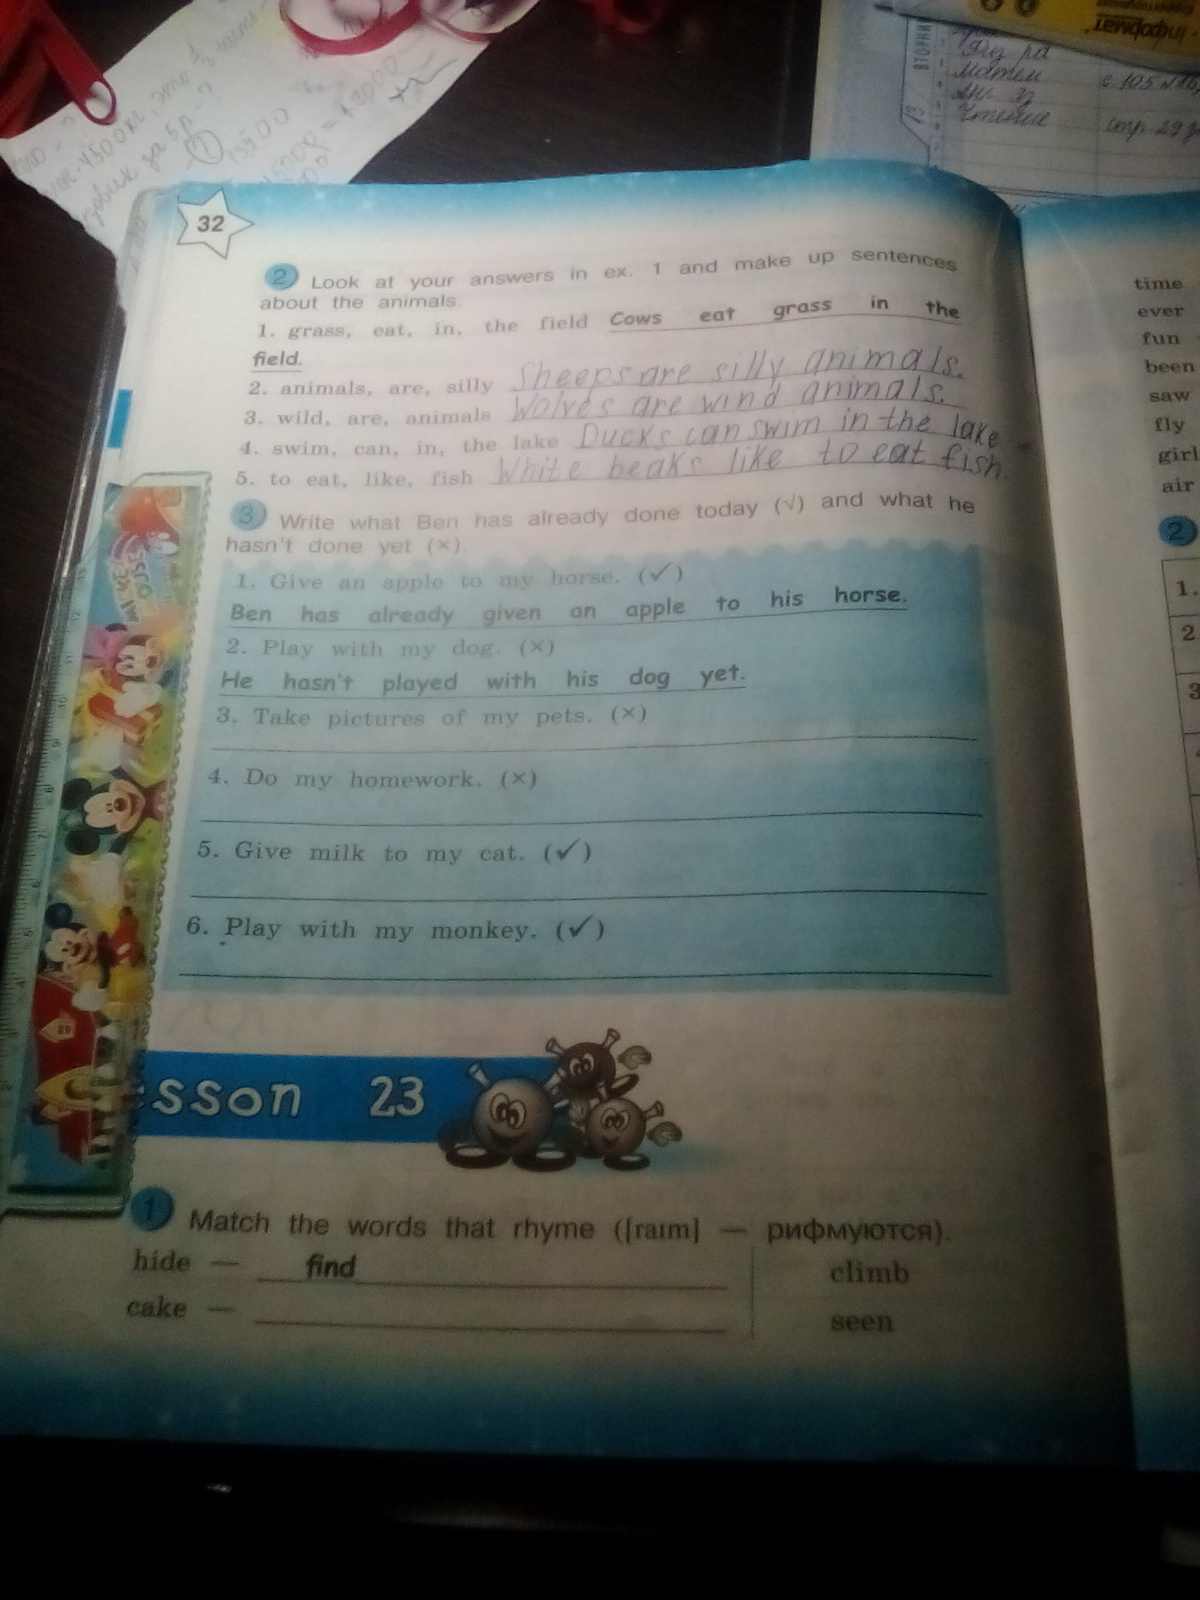 ВТОРНИК
матем
Чтение
32
2 Look at your answers in ex. 1 and make up sentences
about the animals.
1. grass, eat, in, the field Cows eat grass in the
field.
2. animals, are, silly Sheeps are silly animals.
3. wild, are, animals Wolves are wind animals.
4. swim, can, in, the lake Ducks can swim in the lake
5. to eat, like, fish White beaks like to eat fish.
3 Write what Ben has already done today (√) and what he
hasn't done yet (×).
1. Give an apple to my horse. (✓)
Ben has already given an apple to his horse.
2. Play with my dog. (×)
He hasn't played with his dog yet.
3. Take pictures of my pets. (×)
4. Do my homework. (×)
5. Give milk to my cat. (✓)
6. Play with my monkey. (✓)
esson 23
1 Match the words that rhyme ([raɪm] — рифмуются).
hide — find climb
cake — seen
time
ever
fun
been
saw
fly
girl
air
2
1.
2
3